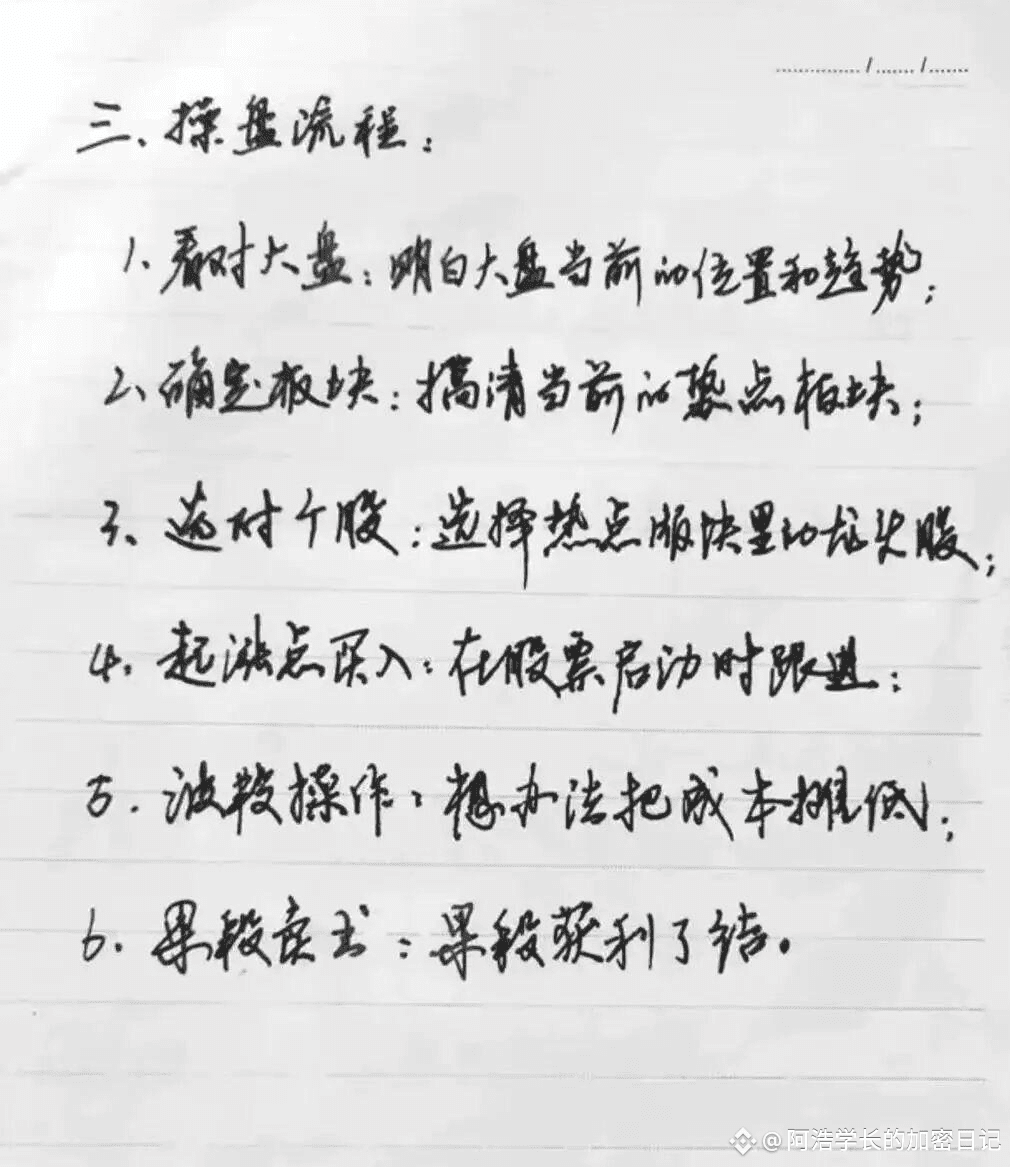 三、操盘流程：
1、看对大盘：明白大盘当前的位置和趋势；
2、确定板块：搞清当前的热点板块；
3、选对个股：选择热点版块里的龙头股；
4、起涨点买入：在股票启动时跟进；
5、波段操作：想办法把成本摊低；
6、果段卖出：果段获利了结。
@阿浩学长的加密日记